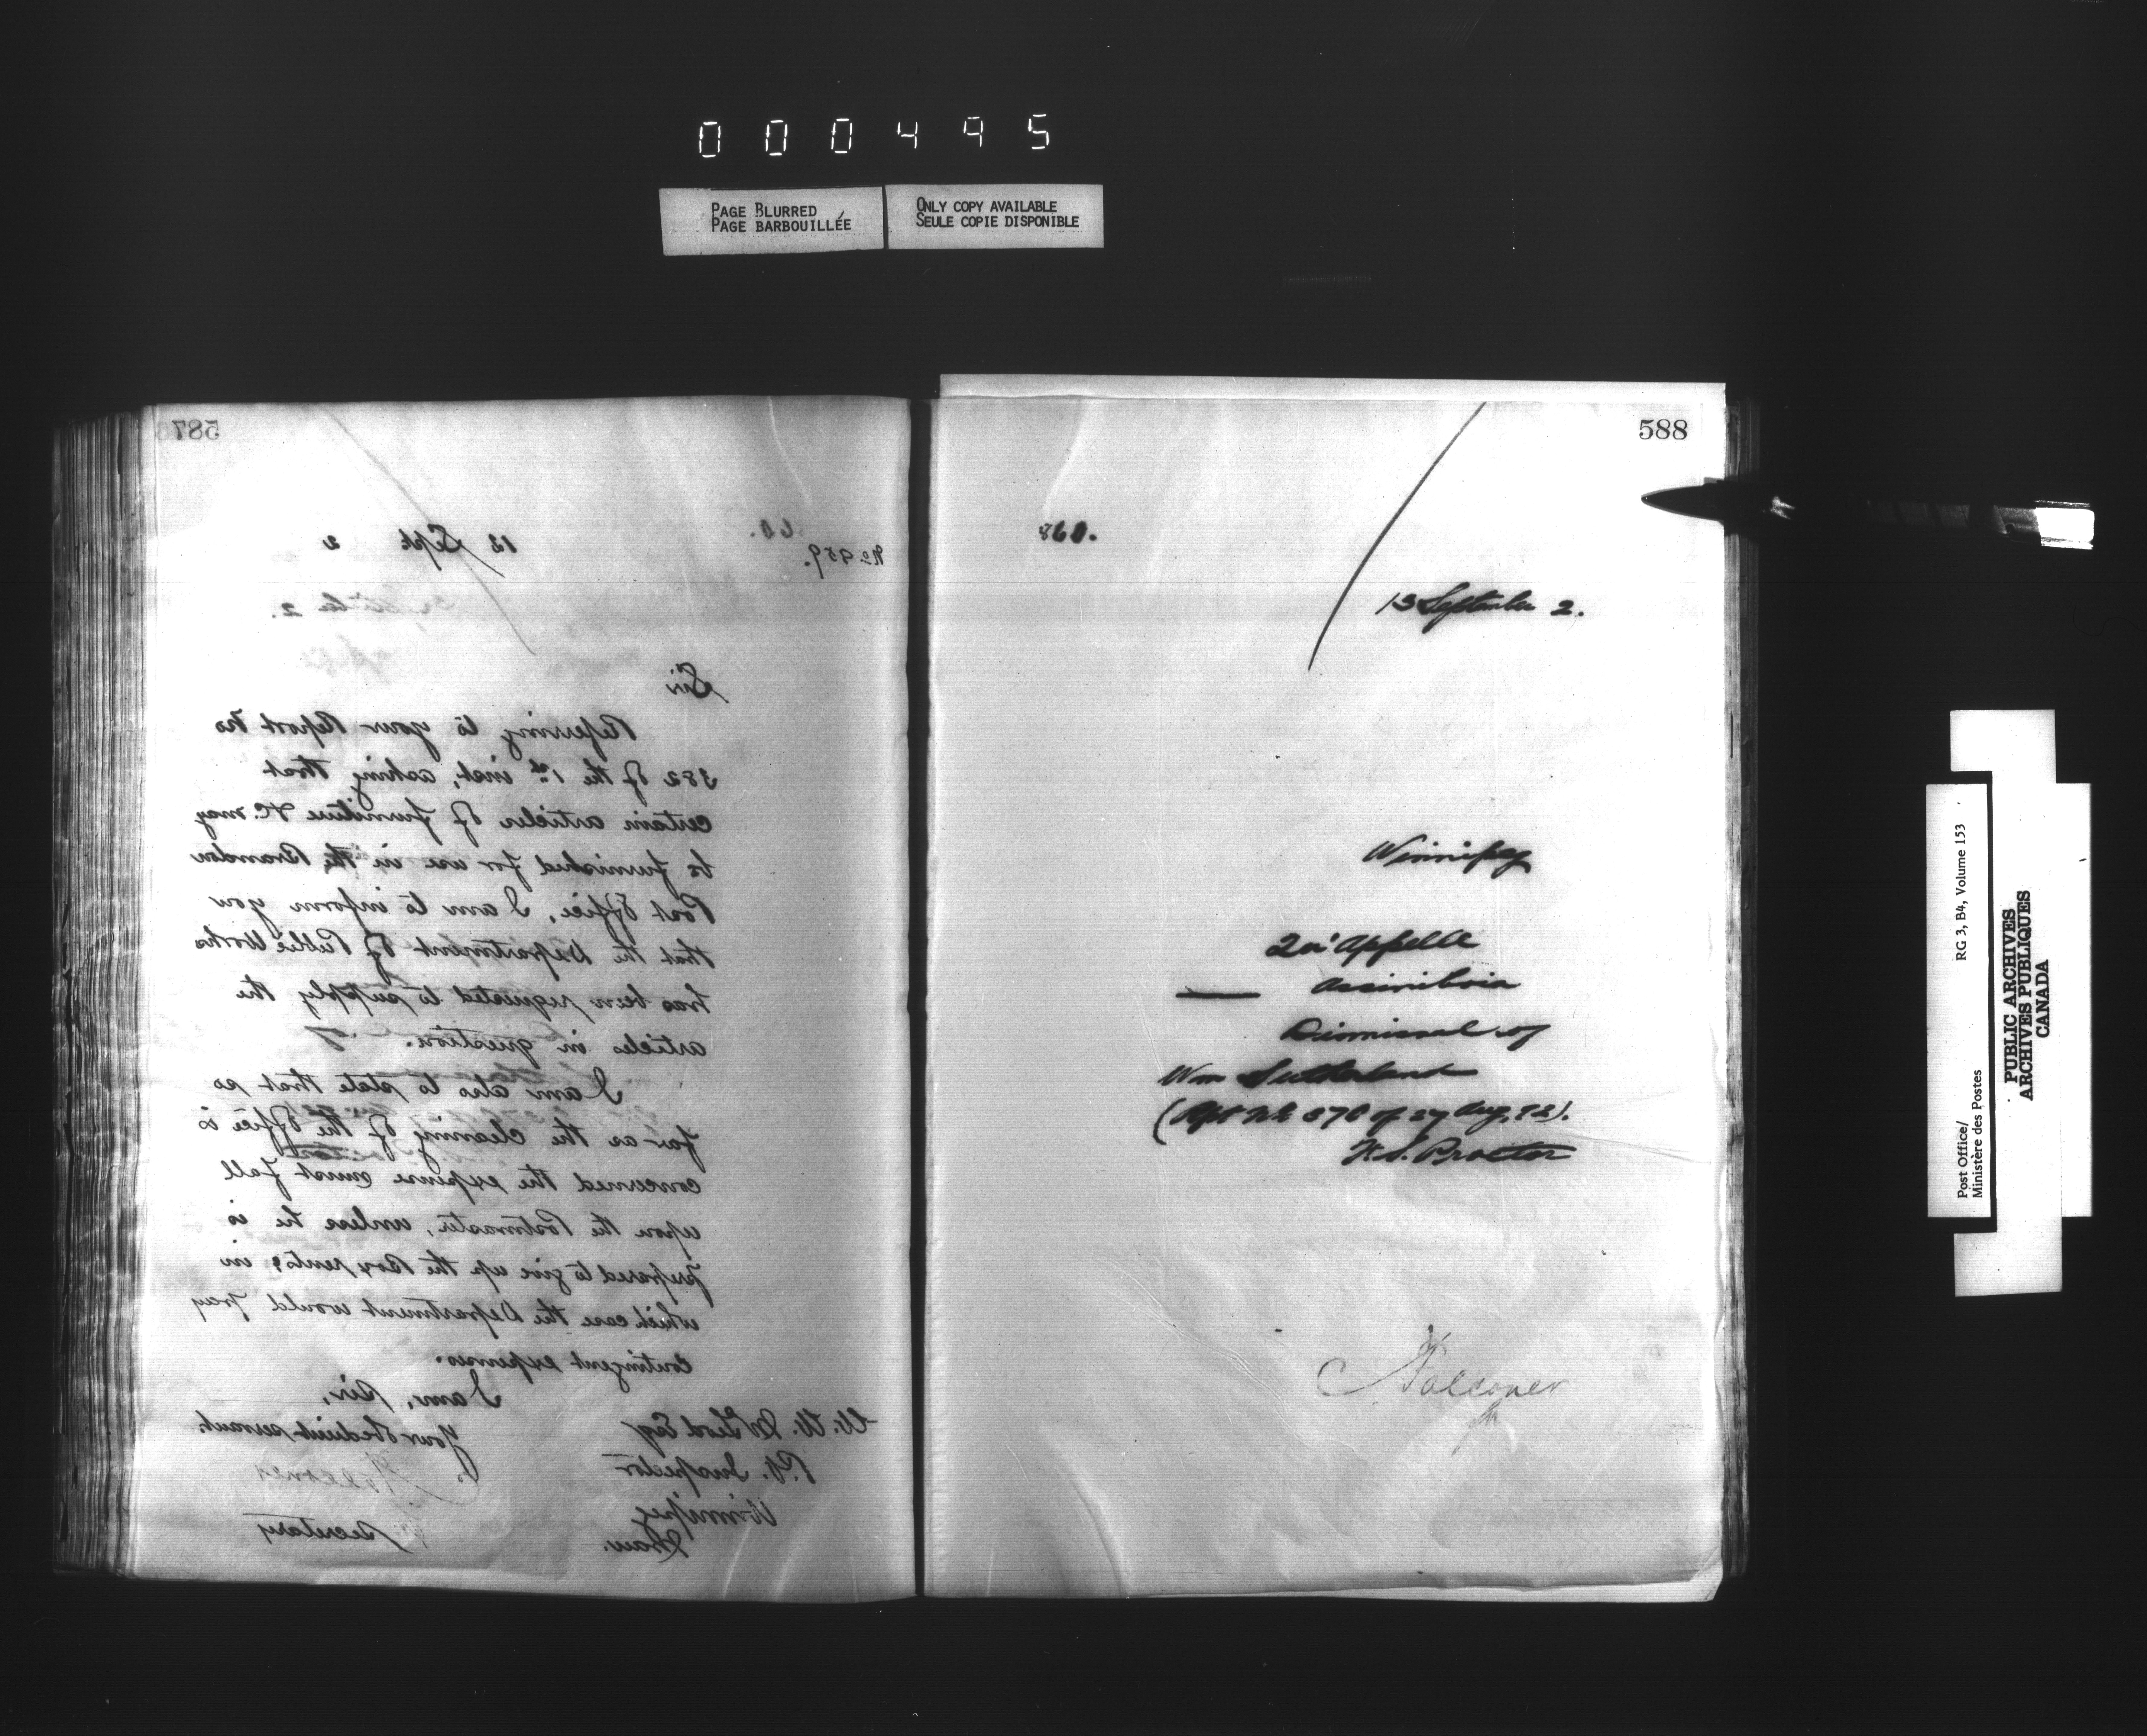 000495
PAGE BLURRED
PAGE BARBOUILLÉE
ONLY COPY AVAILABLE
SEULE COPIE DISPONIBLE
587
13 Sept. 2
Sir
Referring to your Report No
382 of the 1st inst, asking that
certain articles of furniture &c. may
be furnished for use in the Brandon
Post Office, I am to inform you
that the Department of Public Works
has been requested to supply the
articles in question.
I am also to state that so
far as the cleaning of the Office is
concerned the expense must fall
upon the Postmaster, unless he is
prepared to give up the Box rents, in
which case the Department would pay
contingent expenses.
I am, Sir,
Your obedient servant.
W. W. McLeod Esq
P.O. Inspector
Winnipeg
Man.
Secretary
588
860.
13 September 2.
Winnipeg
Qu'Appelle
Assiniboia
Dismissal of
Wm Sutherland
(Rpt No 370 of 27 Aug, 92).
Proctor
Falconer
Post Office/
Ministère des Postes
RG 3, B4, Volume 153
PUBLIC ARCHIVES
ARCHIVES PUBLIQUES
CANADA